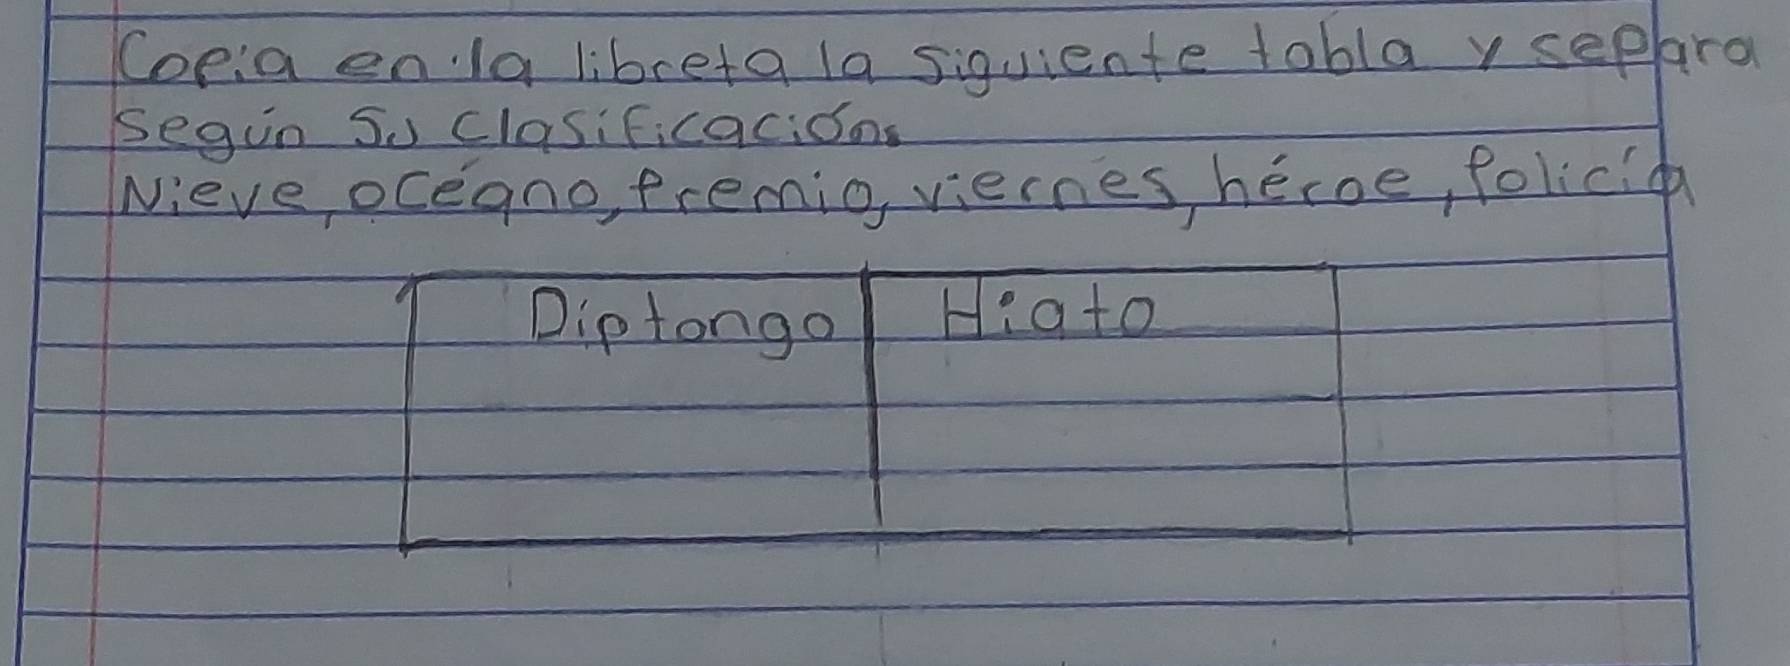 Copia en la libreta la siguiente tabla y separa
según su clasificación.
Nieve, océano, Premio, viernes, héroe, Policía
Diptongo Hiato